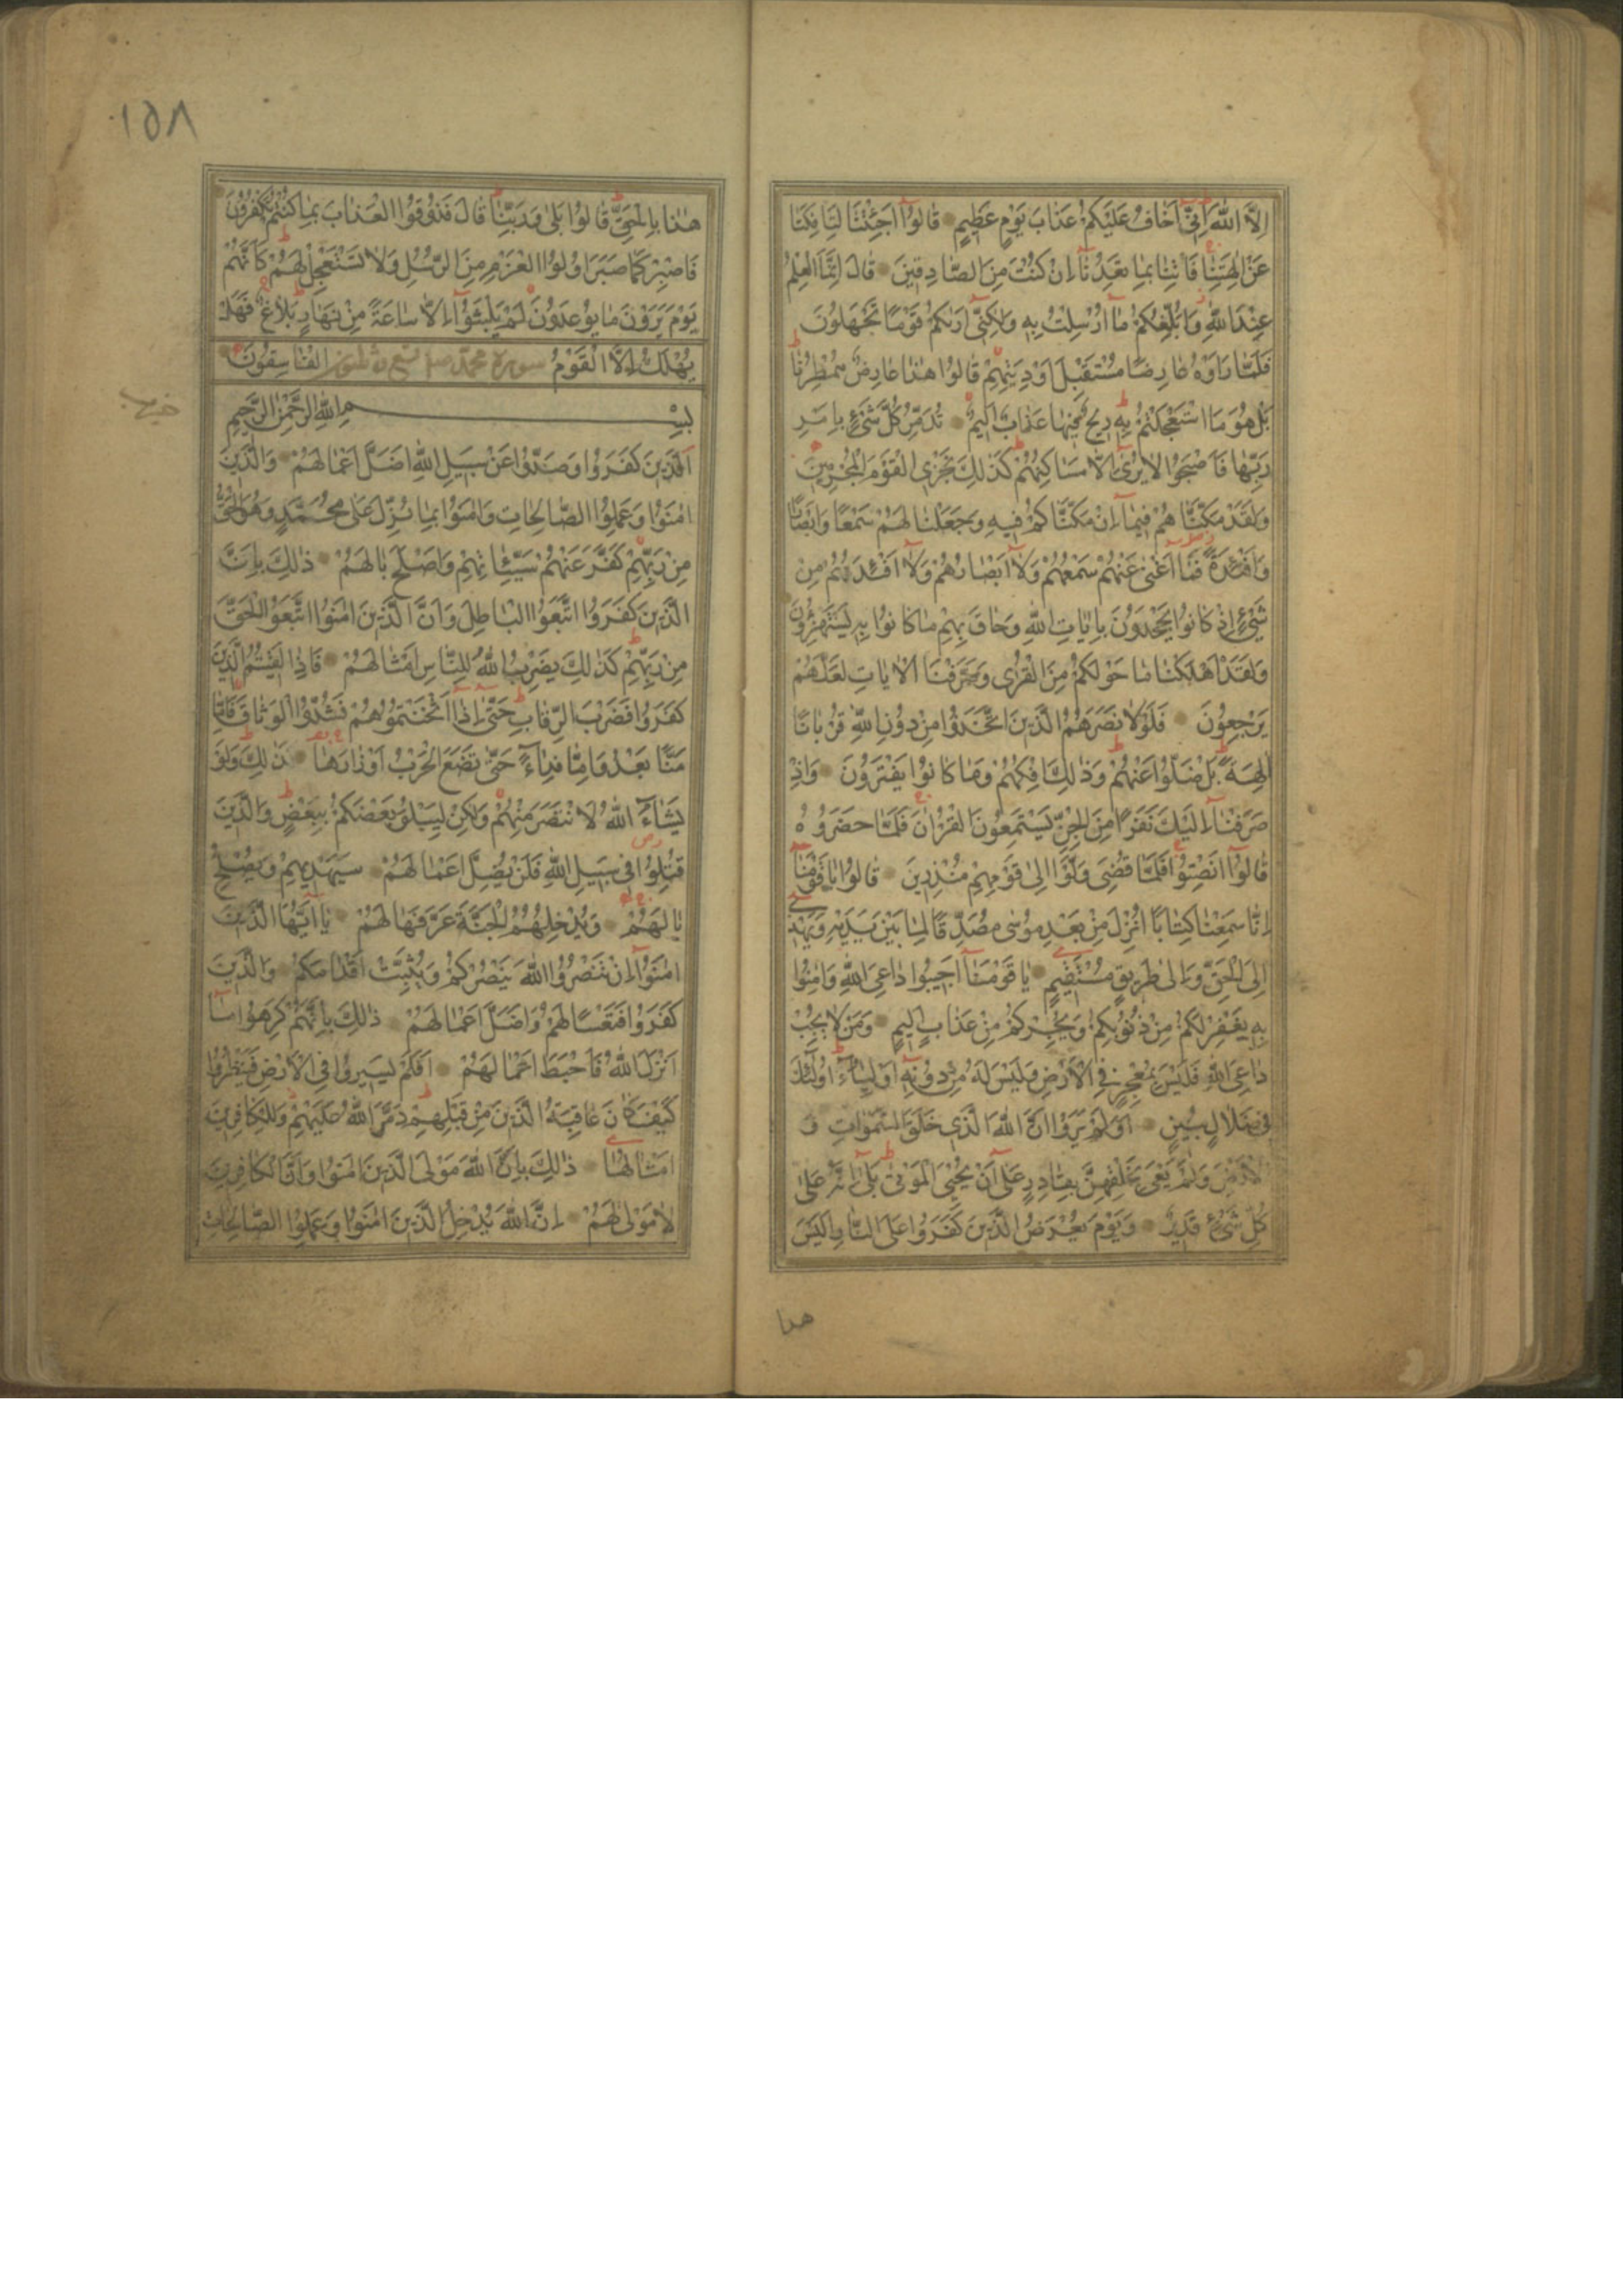 اِلَّا اللّٰهَ اِنِّي اَخَافُ عَلَيْكُمْ عَذَابَ يَوْمٍ عَظِيمٍ قَالُوا اَجِئْتَنَا لِتَاْفِكَنَا
عَنْ اٰلِهَتِنَا فَاْتِنَا بِمَا تَعِدُنَا اِنْ كُنْتَ مِنَ الصَّادِقِينَ قَالَ اِنَّمَا الْعِلْمُ
عِنْدَ اللّٰهِ وَاُبَلِّغُكُمْ مَا اُرْسِلْتُ بِهِ وَلٰكِنِّي اَرٰيكُمْ قَوْمًا تَجْهَلُونَ
فَلَمَّا رَاَوْهُ عَارِضًا مُسْتَقْبِلَ اَوْدِيَتِهِمْ قَالُوا هٰذَا عَارِضٌ مُمْطِرُنَا
بَلْ هُوَ مَا اسْتَعْجَلْتُمْ بِهِ رِيحٌ فِيهَا عَذَابٌ اَلِيمٌ تُدَمِّرُ كُلَّ شَيْءٍ بِاَمْرِ
رَبِّهَا فَاَصْبَحُوا لَا يُرٰى اِلَّا مَسَاكِنُهُمْ كَذٰلِكَ نَجْزِي الْقَوْمَ الْمُجْرِمِينَ
وَلَقَدْ مَكَّنَّاهُمْ فِيمَا اِنْ مَكَّنَّاكُمْ فِيهِ وَجَعَلْنَا لَهُمْ سَمْعًا وَاَبْصَارًا
وَاَفْئِدَةً فَمَا اَغْنٰى عَنْهُمْ سَمْعُهُمْ وَلَا اَبْصَارُهُمْ وَلَا اَفْئِدَتُهُمْ مِنْ
شَيْءٍ اِذْ كَانُوا يَجْحَدُونَ بِاٰيَاتِ اللّٰهِ وَحَاقَ بِهِمْ مَا كَانُوا بِهِ يَسْتَهْزِؤُنَ
وَلَقَدْ اَهْلَكْنَا مَا حَوْلَكُمْ مِنَ الْقُرٰى وَصَرَّفْنَا الْاٰيَاتِ لَعَلَّهُمْ
يَرْجِعُونَ فَلَوْلَا نَصَرَهُمُ الَّذِينَ اتَّخَذُوا مِنْ دُونِ اللّٰهِ قُرْبَانًا
اٰلِهَةً بَلْ ضَلُّوا عَنْهُمْ وَذٰلِكَ اِفْكُهُمْ وَمَا كَانُوا يَفْتَرُونَ وَاِذْ
صَرَفْنَا اِلَيْكَ نَفَرًا مِنَ الْجِنِّ يَسْتَمِعُونَ الْقُرْاٰنَ فَلَمَّا حَضَرُوهُ
قَالُوا اَنْصِتُوا فَلَمَّا قُضِيَ وَلَّوْا اِلٰى قَوْمِهِمْ مُنْذِرِينَ قَالُوا يَا قَوْمَنَا
اِنَّا سَمِعْنَا كِتَابًا اُنْزِلَ مِنْ بَعْدِ مُوسٰى مُصَدِّقًا لِمَا بَيْنَ يَدَيْهِ وَيَهْدِي
اِلَى الْحَقِّ وَاِلٰى طَرِيقٍ مُسْتَقِيمٍ يَا قَوْمَنَا اَجِيبُوا دَاعِيَ اللّٰهِ وَاٰمِنُوا
بِهِ يَغْفِرْ لَكُمْ مِنْ ذُنُوبِكُمْ وَيُجِرْكُمْ مِنْ عَذَابٍ اَلِيمٍ وَمَنْ لَا يُجِبْ
دَاعِيَ اللّٰهِ فَلَيْسَ بِمُعْجِزٍ فِي الْاَرْضِ وَلَيْسَ لَهُ مِنْ دُونِهِ اَوْلِيَاءُ اُولٰئِكَ
فِي ضَلَالٍ مُبِينٍ اَوَلَمْ يَرَوْا اَنَّ اللّٰهَ الَّذِي خَلَقَ السَّمٰوَاتِ وَ
الْاَرْضَ وَلَمْ يَعْيَ بِخَلْقِهِنَّ بِقَادِرٍ عَلٰى اَنْ يُحْيِيَ الْمَوْتٰى بَلٰى اِنَّهُ عَلٰى
كُلِّ شَيْءٍ قَدِيرٌ وَيَوْمَ يُعْرَضُ الَّذِينَ كَفَرُوا عَلَى النَّارِ اَلَيْسَ
هذا
١٥٨
هٰذَا بِالْحَقِّ قَالُوا بَلٰى وَرَبِّنَا قَالَ فَذُوقُوا الْعَذَابَ بِمَا كُنْتُمْ تَكْفُرُونَ
فَاصْبِرْ كَمَا صَبَرَ اُولُوا الْعَزْمِ مِنَ الرُّسُلِ وَلَا تَسْتَعْجِلْ لَهُمْ كَاَنَّهُمْ
يَوْمَ يَرَوْنَ مَا يُوعَدُونَ لَمْ يَلْبَثُوا اِلَّا سَاعَةً مِنْ نَهَارٍ بَلَاغٌ فَهَلْ
يُهْلَكُ اِلَّا الْقَوْمُ سورة محمد الْفَاسِقُونَ
بِسْمِ اللّٰهِ الرَّحْمٰنِ الرَّحِيمِ
اَلَّذِينَ كَفَرُوا وَصَدُّوا عَنْ سَبِيلِ اللّٰهِ اَضَلَّ اَعْمَالَهُمْ وَالَّذِينَ
اٰمَنُوا وَعَمِلُوا الصَّالِحَاتِ وَاٰمَنُوا بِمَا نُزِّلَ عَلٰى مُحَمَّدٍ وَهُوَ الْحَقُّ
مِنْ رَبِّهِمْ كَفَّرَ عَنْهُمْ سَيِّئَاتِهِمْ وَاَصْلَحَ بَالَهُمْ ذٰلِكَ بِاَنَّ
الَّذِينَ كَفَرُوا اتَّبَعُوا الْبَاطِلَ وَاَنَّ الَّذِينَ اٰمَنُوا اتَّبَعُوا الْحَقَّ
مِنْ رَبِّهِمْ كَذٰلِكَ يَضْرِبُ اللّٰهُ لِلنَّاسِ اَمْثَالَهُمْ فَاِذَا لَقِيتُمُ الَّذِينَ
كَفَرُوا فَضَرْبَ الرِّقَابِ حَتّٰى اِذَا اَثْخَنْتُمُوهُمْ فَشُدُّوا الْوَثَاقَ فَاِمَّا
مَنًّا بَعْدُ وَاِمَّا فِدَاءً حَتّٰى تَضَعَ الْحَرْبُ اَوْزَارَهَا ذٰلِكَ وَلَوْ
يَشَاءُ اللّٰهُ لَانْتَصَرَ مِنْهُمْ وَلٰكِنْ لِيَبْلُوَ بَعْضَكُمْ بِبَعْضٍ وَالَّذِينَ
قُتِلُوا فِي سَبِيلِ اللّٰهِ فَلَنْ يُضِلَّ اَعْمَالَهُمْ سَيَهْدِيهِمْ وَيُصْلِحُ
بَالَهُمْ وَيُدْخِلُهُمُ الْجَنَّةَ عَرَّفَهَا لَهُمْ يَا اَيُّهَا الَّذِينَ
اٰمَنُوا اِنْ تَنْصُرُوا اللّٰهَ يَنْصُرْكُمْ وَيُثَبِّتْ اَقْدَامَكُمْ وَالَّذِينَ
كَفَرُوا فَتَعْسًا لَهُمْ وَاَضَلَّ اَعْمَالَهُمْ ذٰلِكَ بِاَنَّهُمْ كَرِهُوا مَا
اَنْزَلَ اللّٰهُ فَاَحْبَطَ اَعْمَالَهُمْ اَفَلَمْ يَسِيرُوا فِي الْاَرْضِ فَيَنْظُرُوا
كَيْفَ كَانَ عَاقِبَةُ الَّذِينَ مِنْ قَبْلِهِمْ دَمَّرَ اللّٰهُ عَلَيْهِمْ وَلِلْكَافِرِينَ
اَمْثَالُهَا ذٰلِكَ بِاَنَّ اللّٰهَ مَوْلَى الَّذِينَ اٰمَنُوا وَاَنَّ الْكَافِرِينَ
لَا مَوْلٰى لَهُمْ اِنَّ اللّٰهَ يُدْخِلُ الَّذِينَ اٰمَنُوا وَعَمِلُوا الصَّالِحَاتِ